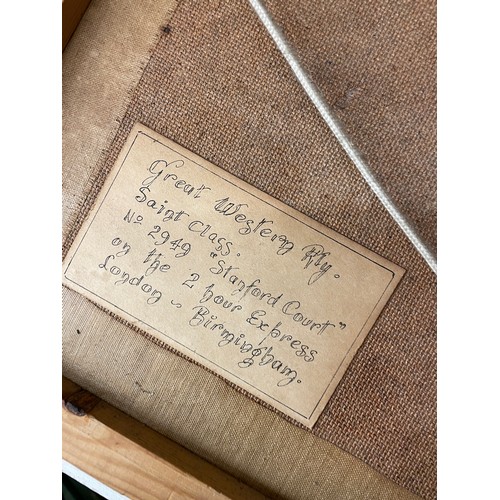 Great Western Rly.
Saint Class.
No 2949 "Stanford Court"
on the 2 hour Express
London ~ Birmingham.